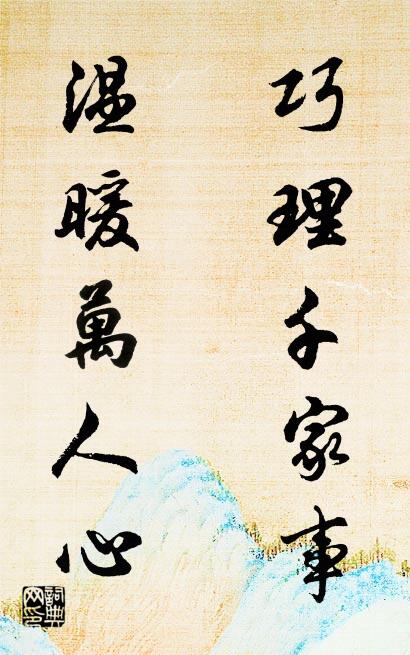 巧理千家事
温暖萬人心
詞典網印